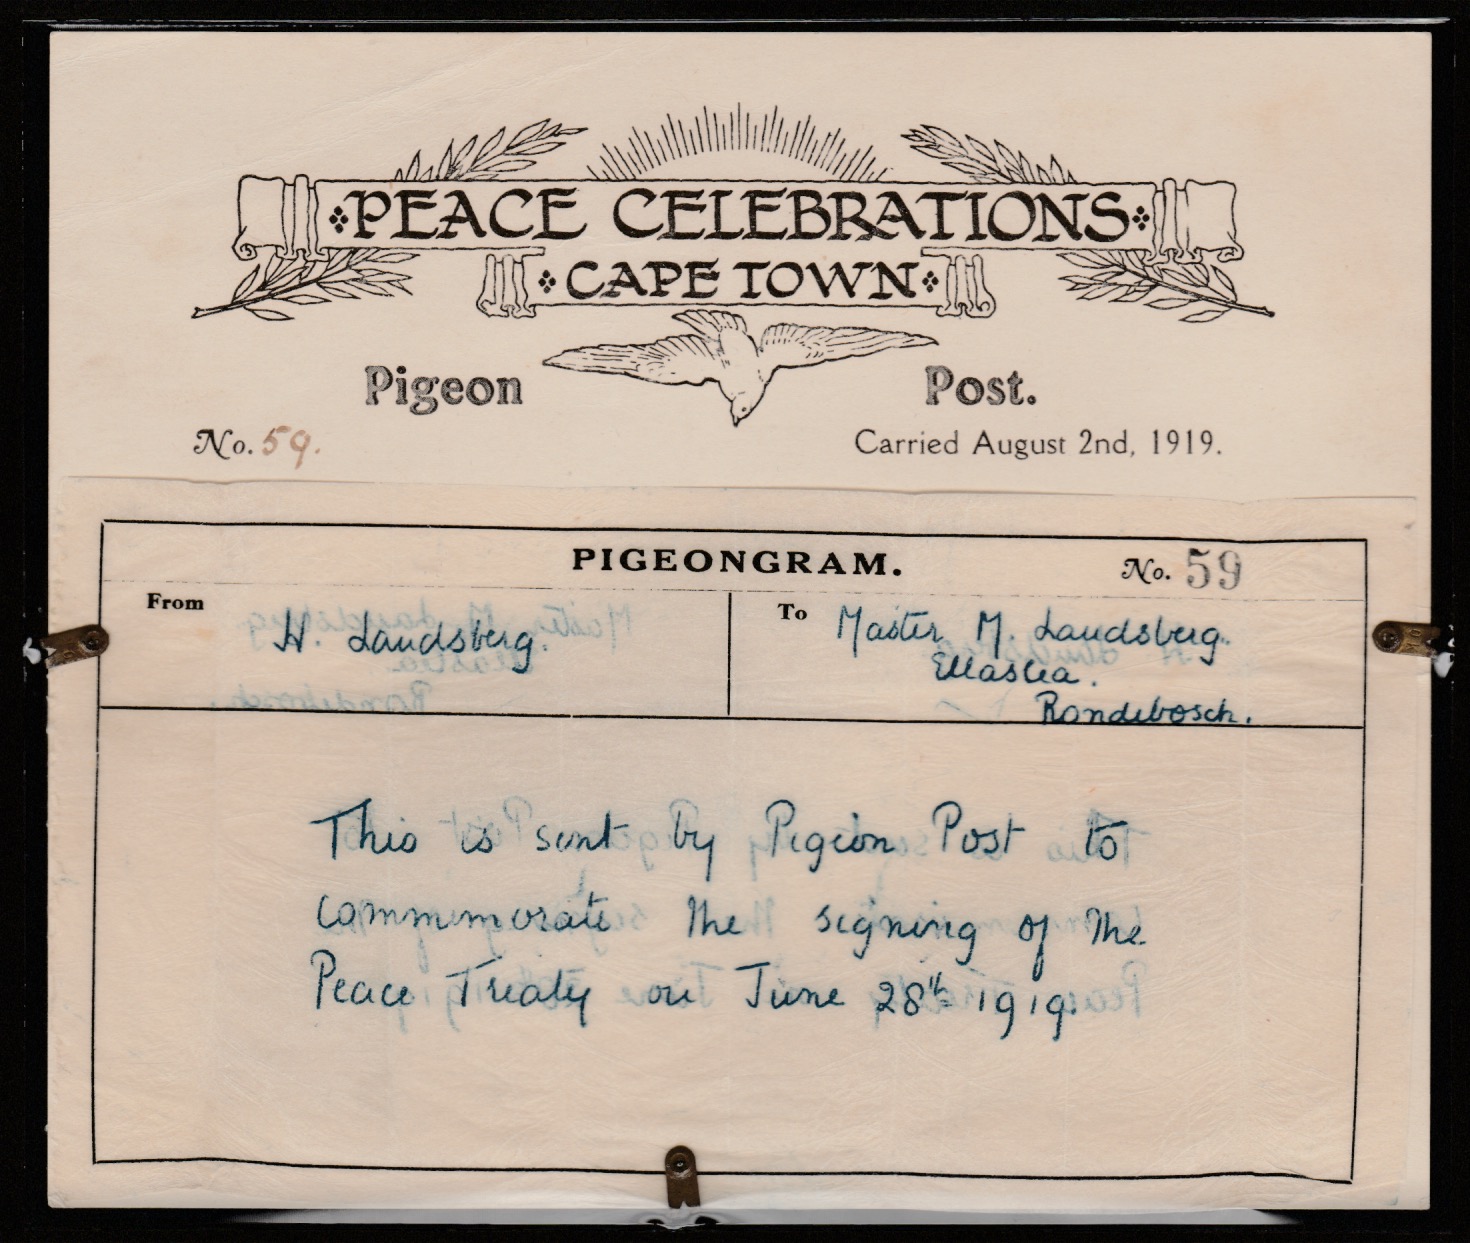 PEACE CELEBRATIONS
CAPE TOWN
Pigeon Post.
No. 59.
Carried August 2nd, 1919.
PIGEONGRAM.
No. 59
From
H. Landsberg.
To
Master M. Landsberg.
Ellaslea.
Rondebosch.
This is sent by Pigeon Post to
commemorate the signing of the
Peace Treaty on June 28th 1919.